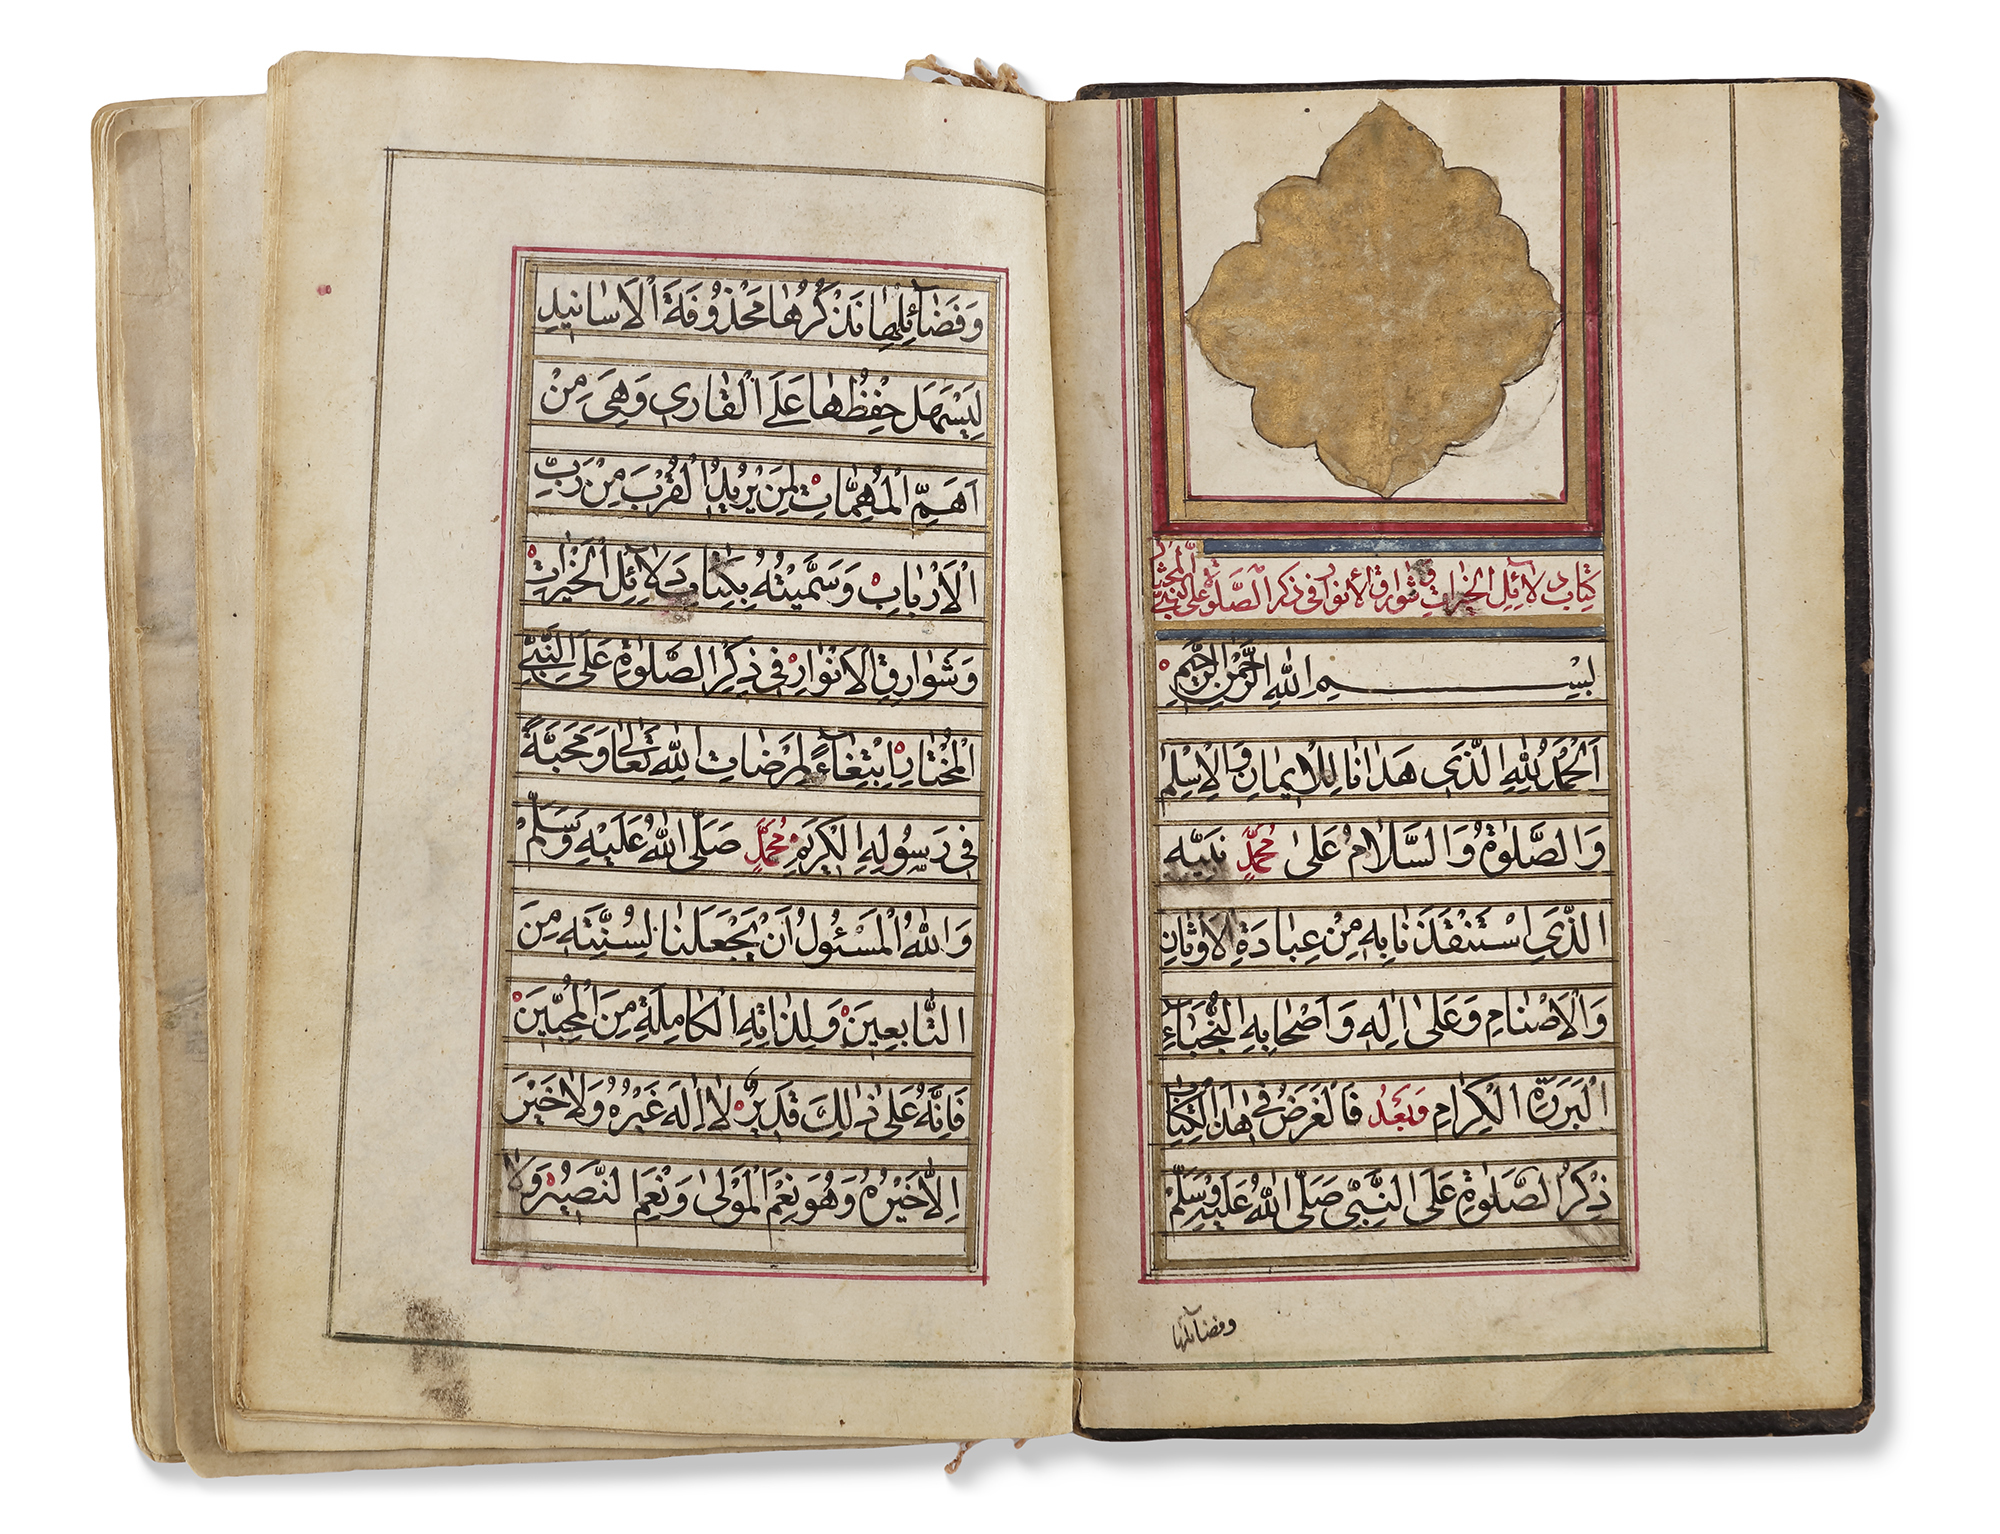 كِتَاب دَلَآئِل الخَيْرَاتِ وَ شَوَارِق الأَنْوَار فِى ذِكْرِ الصَّلٰوةِ عَلَى النَّبِيّ المُخْتَار
بِسْــــــمِ اللهِ الرَّحْمٰنِ الرَّحِيْمِ
اَلْحَمْدُ لِلّٰهِ الَّذِي هَدَانَا لِلْاِيْمَانِ وَالْاِسْلٰمِ
وَالصَّلٰوةُ وَالسَّلَامُ عَلٰى مُحَمَّدٍ نَبِيِّهِ
الَّذِي اسْتَنْقَذَنَا بِهِ مِنْ عِبَادَةِ الْاَوْثَانِ
وَالْاَصْنَامِ وَعَلٰى اٰلِهِ وَاَصْحَابِهِ النُّجَبَآءِ
الْبَرَرَةِ الْكِرَامِ وَبَعْدُ فَالْغَرَضُ فِي هٰذَا الْكِتَابِ
ذِكْرُ الصَّلٰوةِ عَلَى النَّبِيِّ صَلَّى اللهُ عَلَيْهِ وَسَلَّمَ
وفضآئلها
وَفَضَآئِلِهَا نَذْكُرُهَا مَحْذُوفَةَ الْاَسَانِيدِ
لِيَسْهَلَ حِفْظُهَا عَلَى الْقَارِي وَهِيَ مِنْ
اَهَمِّ الْمُهِمَّاتِ لِمَنْ يُرِيدُ الْقُرْبَ مِنْ رَبِّ
الْاَرْبَابِ وَسَمَّيْتُهُ بِكِتَابِ دَلَآئِلِ الْخَيْرَاتِ
وَشَوَارِقِ الْاَنْوَارِ فِي ذِكْرِ الصَّلٰوةِ عَلَى النَّبِيِّ
الْمُخْتَارِ ابْتِغَآءً لِمَرْضَاتِ اللهِ تَعَالٰى وَمَحَبَّةً
فِي رَسُولِهِ الْكَرِيمِ مُحَمَّدٍ صَلَّى اللهُ عَلَيْهِ وَسَلَّمَ
وَاللهُ الْمَسْئُولُ اَنْ يَجْعَلَنَا لِسُنَّتِهِ مِنَ
التَّابِعِينَ وَلِذَاتِهِ الْكَامِلَةِ مِنَ الْمُحِبِّينَ
فَاِنَّهُ عَلٰى ذٰلِكَ قَدِيرٌ لَا اِلٰهَ غَيْرُهُ وَلَا خَيْرَ
اِلَّا خَيْرُهُ وَهُوَ نِعْمَ الْمَوْلٰى وَنِعْمَ النَّصِيرُ وَلَا